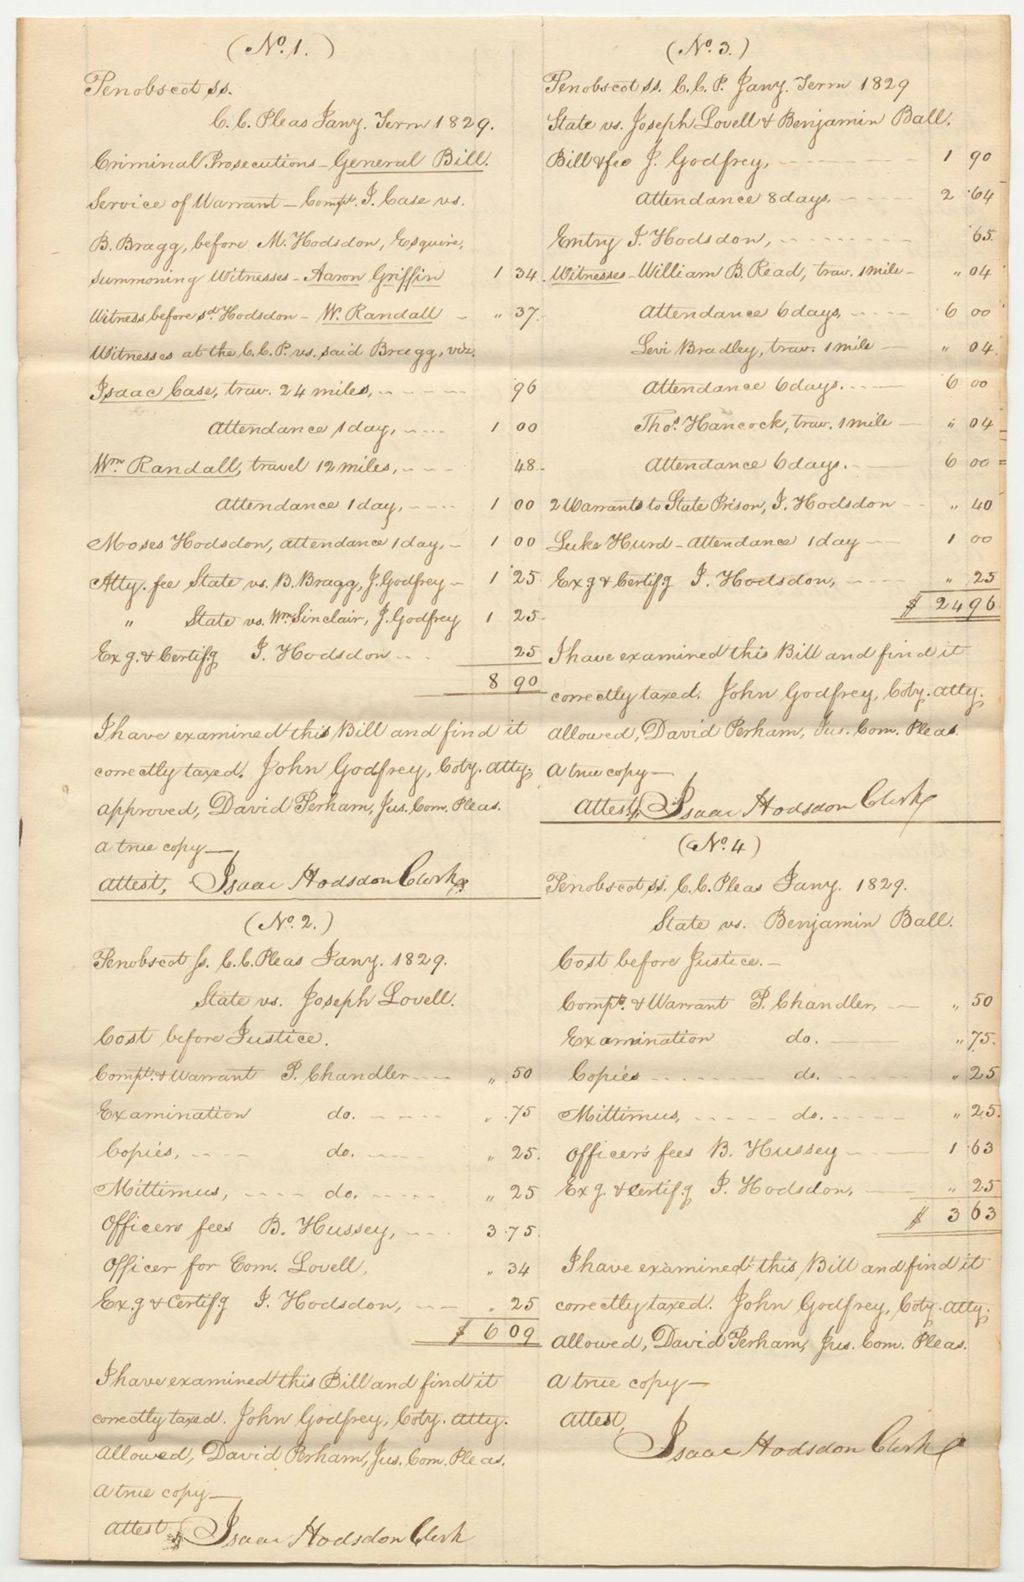 (No. 1.)
Penobscot ss.
C. C. Pleas Jany. Term 1829.
Criminal Prosecutions - General Bill.
Service of Warrant - Compt. I. Case vs.
B. Bragg, before M. Hodsdon, Esquire,
summoning Witnesses - Aaron Griffin 1 34.
Witness before sd. Hodsdon - W. Randall - " 37.
Witnesses at the C. C. P. vs. said Bragg, viz.
Isaac Case, trav. 24 miles, - - - - - 96
Attendance 1 day, - - - - 1 00
Wm. Randall, travel 12 miles, - - - 48.
Attendance 1 day, - - - - 1 00
Moses Hodsdon, attendance 1 day, - 1 00
Atty. fee State vs. B. Bragg, J. Godfrey - 1 25
" State vs. Wm. Sinclair, J. Godfrey 1 25.
Exg. & Certifg I. Hodsdon - - 25
8 90
I have examined this Bill and find it
correctly taxed. John Godfrey, Coty. Atty.
approved, David Perham, Jus. Com. Pleas.
A true copy -
attest, Isaac Hodsdon Clerk
(No. 2.)
Penobscot ss. C. C. Pleas Jany. 1829.
State vs. Joseph Lovell.
Cost before Justice.
Compt. & Warrant P. Chandler - - " 50
Examination do. - - - - " 75
Copies, - - - - do. - - - - " 25.
Mittimus, - - - - do. - - - - " 25
Officers fees B. Hussey, - - - 3.75.
Officer for Com. Lovell. " 34
Exg & Certifg I. Hodsdon, - - " 25
$ 6 09
I have examined this Bill and find it
correctly taxed. John Godfrey, Coty. Atty.
Allowed, David Perham, Jus. Com. Pleas.
A true copy -
attest. Isaac Hodsdon Clerk
(No. 3.)
Penobscot ss. C. C. P. Jany. Term 1829
State vs. Joseph Lovell & Benjamin Ball.
Bill & fee J. Godfrey, - - - - - 1 90
Attendance 8 days - - - - 2 64
Entry I. Hodsdon, - - - - - - 65.
Witnesses - William B Read, trav. 1 mile - " 04
Attendance 6 days, - - - - 6 00
Levi Bradley, trav. 1 mile - " 04.
Attendance 6 days. - - - 6 00
Thos. Hancock, trav. 1 mile - " 04
Attendance 6 days. - - 6 00
2 Warrants to State Prison, I. Hodsdon - - " 40
Luke Hurd - attendance 1 day - 1 00
Exg & Certifg I. Hodsdon, - - - " 25
$ 24 96
I have examined this Bill and find it
correctly taxed. John Godfrey, Coty. Atty.
Allowed, David Perham, Jus. Com. Pleas.
A true copy -
Attest, Isaac Hodsdon Clerk
(No. 4)
Penobscot ss. C. C. Pleas Jany. 1829.
State vs. Benjamin Ball.
Cost before Justice. -
Compt. & Warrant P. Chandler, - " 50
Examination do. - - - " 75.
Copies - - - - do. - - - " 25
Mittimus, - - - - do. - - - - " 25.
Officer's fees B. Hussey - - - 1 63
Exg. & Certifg I. Hodsdon, - - " 25
$ 3 63
I have examined this Bill and find it
correctly taxed. John Godfrey, Coty. Atty.
Allowed, David Perham, Jus. Com. Pleas.
A true copy -
Attest,
Isaac Hodsdon Clerk